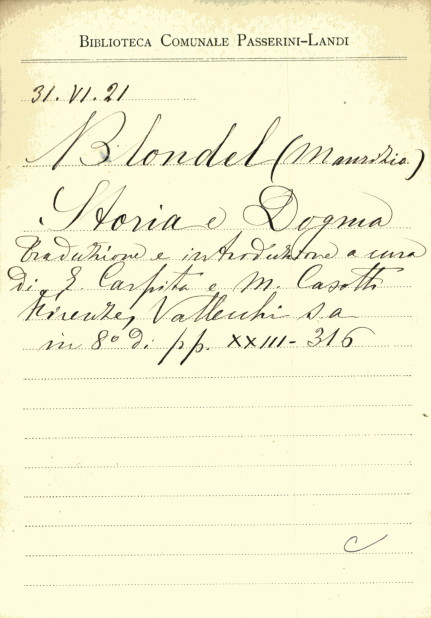 BIBLIOTECA COMUNALE PASSERINI-LANDI
31. VI. 21
Blondel (Maurizio)
Storia e Dogma
Traduzione e introduzione a cura
di E Carpita e M. Casotti
Firenze, Vallecchi s.a
in 8° di pp. XXIII-316
C